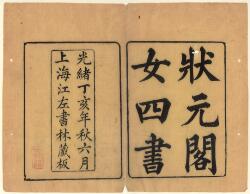 狀元閣
女四書
光緒丁亥年秋六月
上海江左書林藏板